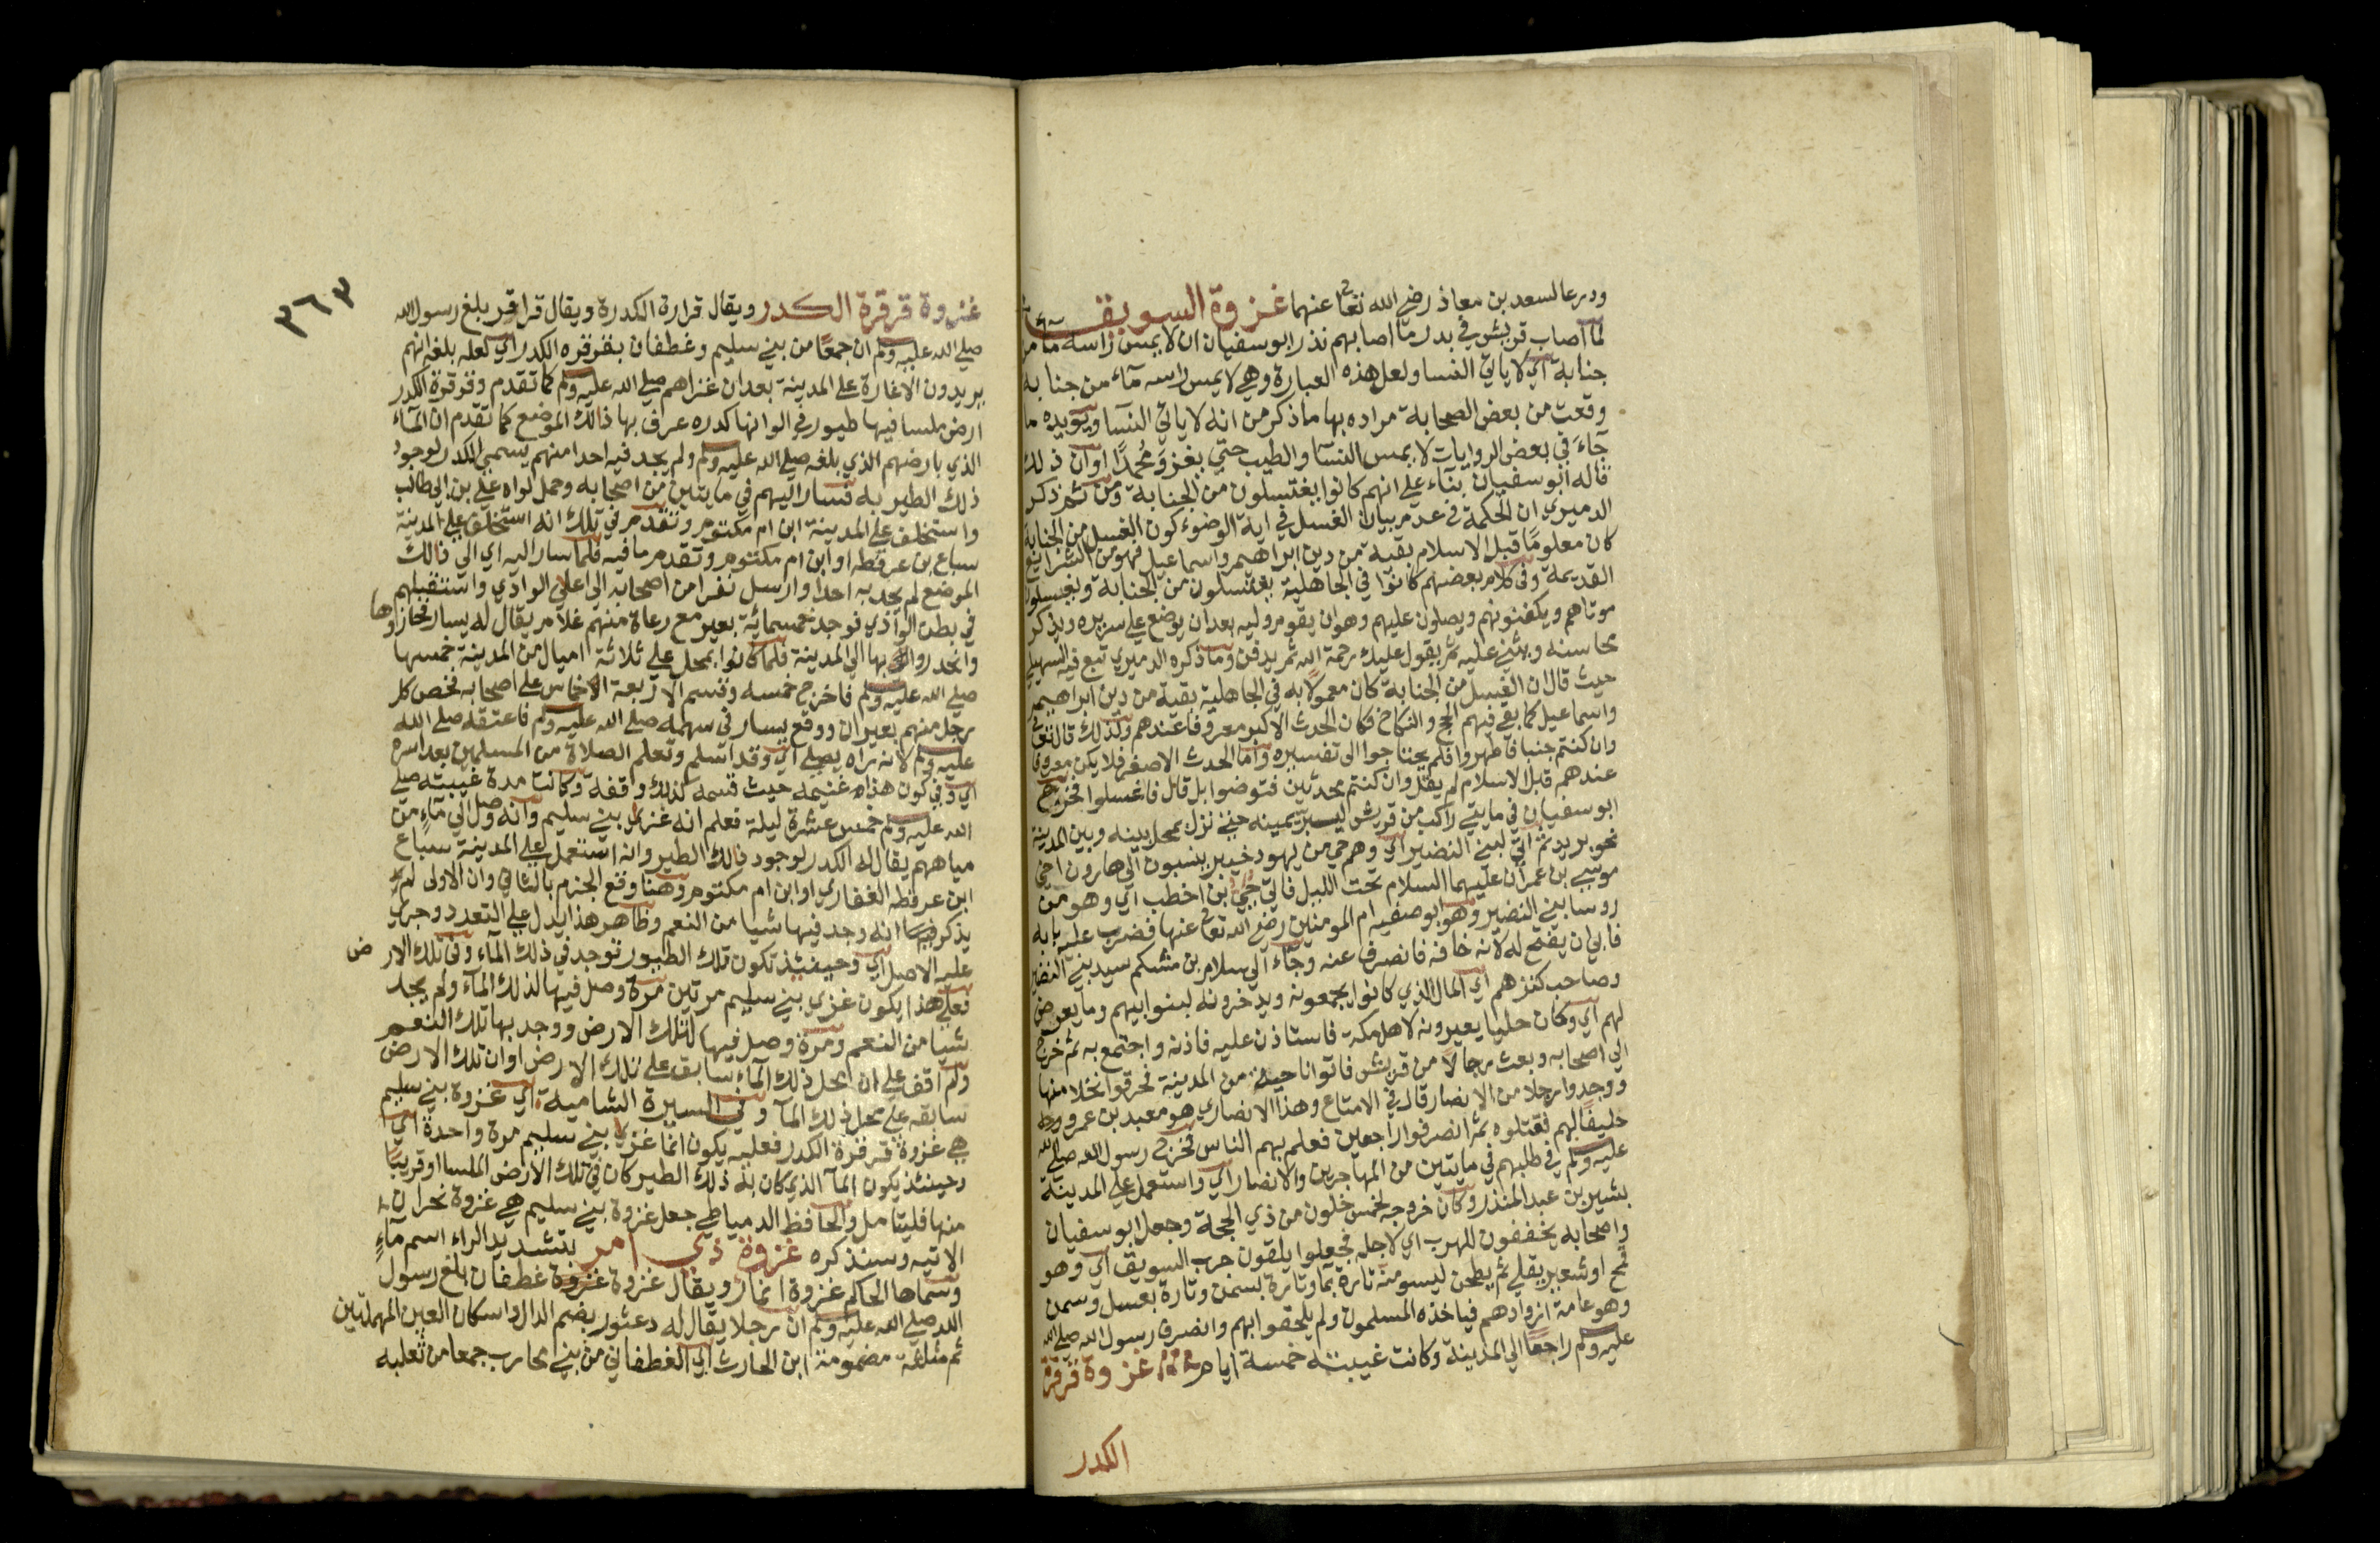 ودرعا لسعد بن معاذ رضي الله تعالى عنهما غزوة السويق
لما اصاب قريش في بدر ما اصابهم نذر ابو سفيان ان لا يمس راسه ماء من
جنابة اي لا ياتي النسا ولعل هذه العبارة وهي لا يمس راسه ماء من جنابه
وقعت من بعض الصحابة مراده بها ما ذكر من انه لا ياتي النسآ ويويده ما
جآء في بعض الروايات لا يمس النسآ والطيب حتي يغزو محمدا او ان ذلك
قاله ابو سفيان بنآء علي انهم كانوا يغتسلون من الجنابة ومن ثم ذكر
الدميري ان الحكمة في عدم بيان الغسل في اية الوضوء كون الغسل من الجنابة
كان معلوما قبل الاسلام بقية من دين ابراهيم واسماعيل فهو من الشرايع
القديمة وفي كلام بعضهم كانوا في الجاهلية يغتسلون من الجنابة ويغسلون
موتاهم ويكفنونهم ويصلون عليهم وهو ان يقوم وليه بعد ان يوضع علي سريره ويذكر
محاسنه ويثني عليه ثم يقول عليك رحمة الله ثم يدفن وما ذكره الدميري تبع فيه السهيلي
حيث قال ان الغسل من الجنابة كان معمولا به في الجاهلية بقية من دين ابراهيم
واسماعيل كما بقي فيهم الحج والنكاح فكان الحدث الاكبر معروفا عندهم ولذلك قال تعالى
وان كنتم جنبا فاطهروا فلم يحتاجوا الى تفسيره واما الحدث الاصغر فلا يكن معروفا
عندهم قبل الاسلام لم يقل وان كنتم محدثين فتوضوا بل قال فاغسلوا فخرج
ابو سفيان في مايتي راكب من قريش ليبر يمينه حتى نزل بمحل بينه وبين المدينة
نحو بريد ثم اتي لبني النضير اي وهم حي من يهود خيبر ينسبون الي هارون اخي
موسى بن عمران عليهما السلام تحت الليل فاتي حيي بن اخطب اي وهو من
روسا بني النضير وهو ابو صفيه ام المومنين رضي الله تعالى عنها فضرب عليه بابه
فابي ان يفتح له لانه خافه فانصرف عنه وجآء الي سلام بن مشكم سيد بني النضير
وصاحب كنزهم اي المال الذي كانوا يجمعونه ويدخرونه لنوايبهم وما يعرض
لهم اي وكان حليا يعيرونه لاهل مكة فاستاذن عليه فاذنه واجتمع به ثم خرج
الي اصحابه وبعث رجالا من قريش فاتوا ناحية من المدينة فحرقوا نخلا منها
ووجدوا رجلا من الانصار قال في الامتاع وهذا الانصاري هو معبد بن عمرو
حليفا لهم فقتلوه ثم انصرفوا راجعين فعلم بهم الناس فخرج رسول الله صلى الله
عليه وسلم في طلبهم في مايتين من المهاجرين والانصار اي واستعمل علي المدينة
بشير بن عبد المنذر وكان خروجه لخمس خلون من ذي الحجة وجعل ابو سفيان
واصحابه يخففون للهرب اي لاجله فجعلوا يلقون جرب السويق اي وهو
قمح او شعير يقلي ثم يطحن ليسو منه تارة بمآ وتارة بسمن وتارة بعسل وسمن
وهو عامة ازوادهم فياخذه المسلمون ولم يلحقوا بهم وانصرف رسول الله صلى الله
عليه وسلم راجعا الي المدينة وكانت غيبته خمسة ايام غزوة قرقرة
الكدر
٣٦٣
غزوة قرقرة الكدر ويقال قرارة الكدرة ويقال قراقر بلغ رسول الله
صلي الله عليه وسلم ان جمعا من بني سليم وغطفان بقرقره الكدر اي لعله بلغه انهم
يريدون الاغارة علي المدينة بعد ان غزاهم صلي الله عليه وسلم كما تقدم وقرقرة الكدر
ارض ملسا فيها طيور في الوانها كدره عرف بها ذالك الموضع كما تقدم ان المآء
الذي بارضهم الذي بلغه صلي الله عليه وسلم ولم يجد فيه احدا منهم يسمي الكدر لوجود
ذلك الطير به فسار اليهم في مايتين من اصحابه وحمل لواه علي بن ابي طالب
واستخلف علي المدينة ابن ام مكتوم وتقدم في تلك انه استخلف علي المدينة
سباع بن عرفطه او ابن ام مكتوم وتقدم ما فيه فلما سار اليه اي الي ذالك
الموضع لم يجد به احدا وارسل نفرا من اصحابه الي اعلي الوادي واستقبلهم
في بطن الوادي فوجد خمسمائة بعير مع رعاة منهم غلام يقال له يسار فحازوها
وانحدروا بها الي المدينة فلما كانوا بمحل علي ثلاثة اميال من المدينة خمسها
صلي الله عليه وسلم فاخرج خمسه وقسم الاربعة الاخماس علي اصحابه فخص كل
رجل منهم بعيران ووقع يسار في سهمه صلي الله عليه وسلم فاعتقه صلي الله
عليه وسلم لانه رآه يصلي اي وقد اسلم وتعلم الصلاة من المسلمين بعد اسره
اي وفي كون هذا غنيمه حيث قسمه كذلك وقفة وكانت مدة غيبته صلي
الله عليه وسلم خمس عشرة ليلة فعلم انه غزي بني سليم وانه وصل الي مآء من
مياههم يقال له الكدر لوجود ذلك الطير وانه استعمل علي المدينة سباع
ابن عرفطه الغفاري او ابن ام مكتوم وهنا وقع الجزم بالثاني وان الاولى لم
يذكر فيها انه وجد فيها شيا من النعم وظاهر هذا يدل علي التعدد وجري
عليه الاصل اي وحينئذ تكون تلك الطيور توجد في ذلك المآء وفي تلك الارض
فعلي هذا يكون غزي بني سليم مرتين مرة وصل فيها لذلك المآء ولم يجد
شيا من النعم ومرة وصل فيها لتلك الارض ووجد بها تلك النعم
ولم اقف علي ان محل ذلك المآء سابق علي تلك الارض او ان تلك الارض
سابقه علي محل ذلك المآ وفي السيرة الشامية اي غزوة بني سليم
هي غزوة قرقرة الكدر فعليه يكون انما غزي بني سليم مرة واحدة اي
وحينئذ يكون المآ الذي كان به ذلك الطير كان في تلك الارض الملسا او قريبا
منها فليتامل والحافظ الدمياطي جعل غزوة بني سليم هي غزوة نحران
الاتيه وسنذكره غزوة ذي امر بتشديد الراء اسم مآء
وسماها الحاكم غزوة انمار ويقال غزوة غزوة غطفان بلغ رسول
الله صلي الله عليه وسلم ان رجلا يقال له دعثور بضم الدال واسكان العين المهملتين
ثم مثلثة مضمومة ابن الحارث اي الغطفاني من بني محارب جمعا من ثعلبه